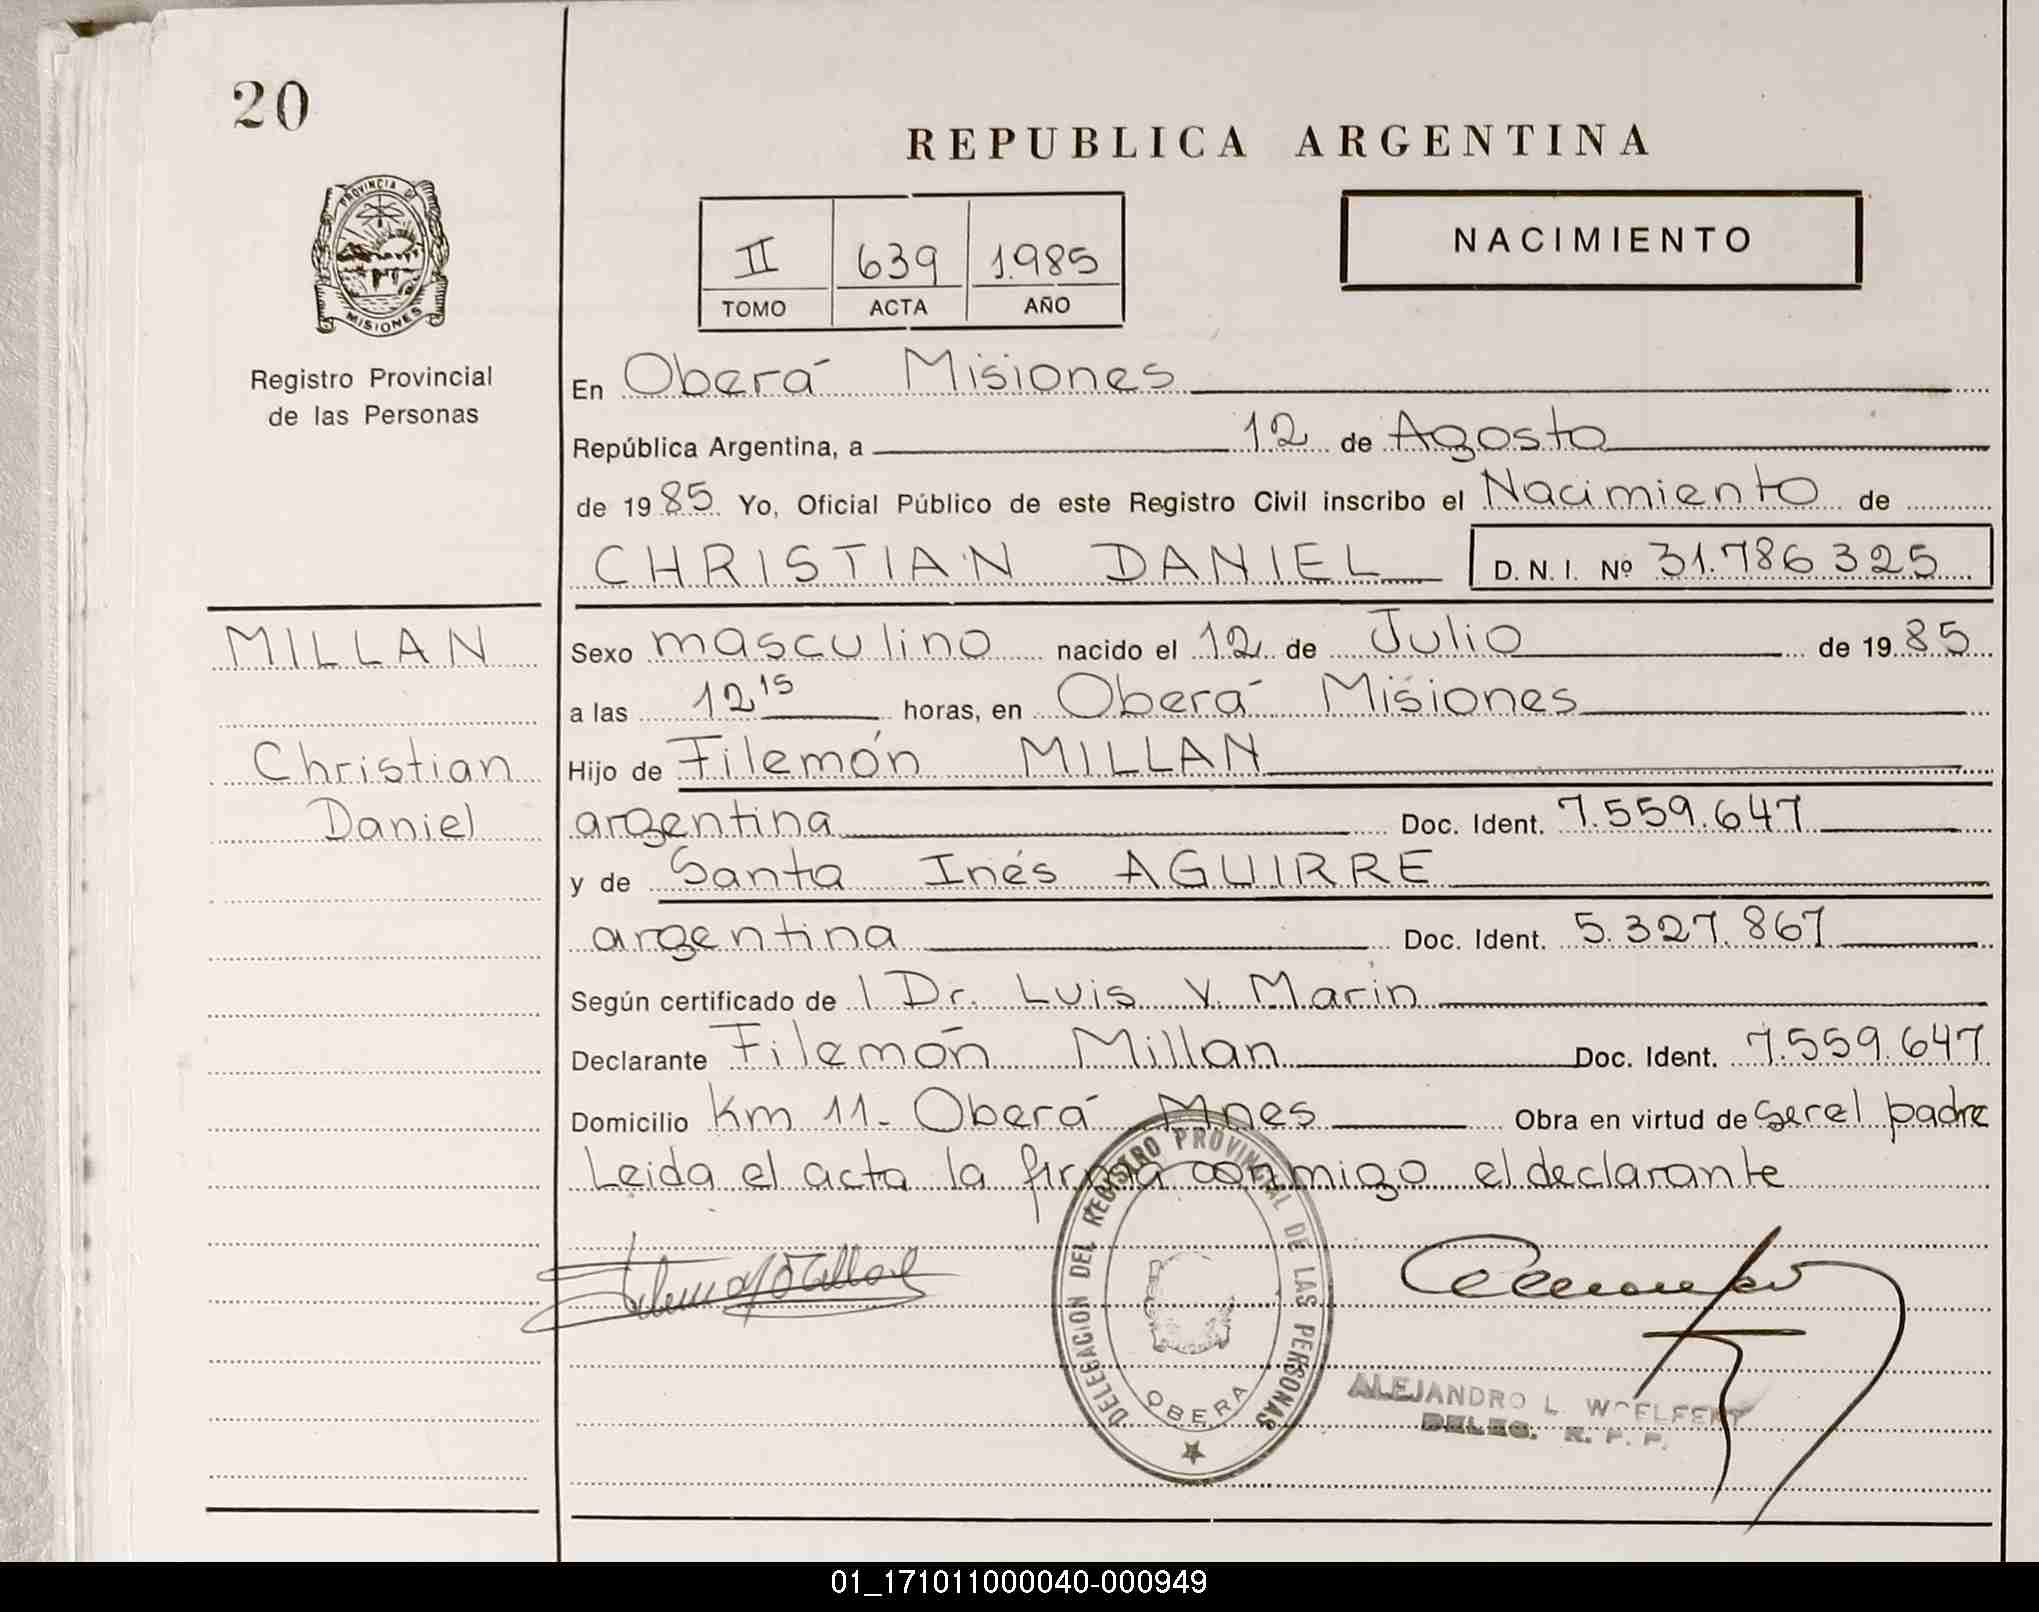 20
PROVINCIA DE
MISIONES
Registro Provincial
de las Personas
MILLAN
Christian
Daniel
REPUBLICA ARGENTINA
II 639 1.985
TOMO ACTA AÑO
NACIMIENTO
En Oberá Misiones
República Argentina, a 12 de Agosto
de 1985 Yo, Oficial Público de este Registro Civil inscribo el Nacimiento de
CHRISTIAN DANIEL D.N.I. Nº 31.786325
Sexo masculino nacido el 12 de Julio de 1985
a las 12 15 horas, en Oberá Misiones
Hijo de Filemón MILLAN
argentina Doc. Ident. 7.559.647
y de Santa Inés AGUIRRE
argentina Doc. Ident. 5.327.867
Según certificado de l Dr. Luis V. Marin
Declarante Filemón Millan Doc. Ident. 7.559.647
Domicilio Km 11- Oberá Mnes Obra en virtud de ser el padre
Leida el acta la firma conmigo el declarante
DELEGACION DEL REGISTRO PROVINCIAL DE LAS PERSONAS
OBERA
ALEJANDRO L. WOELFERT
DELEG. R. P. P.
01_171011000040-000949